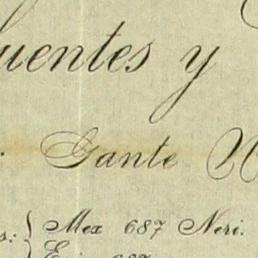 uentes y
Gante
s: { Mex 687 Neri.